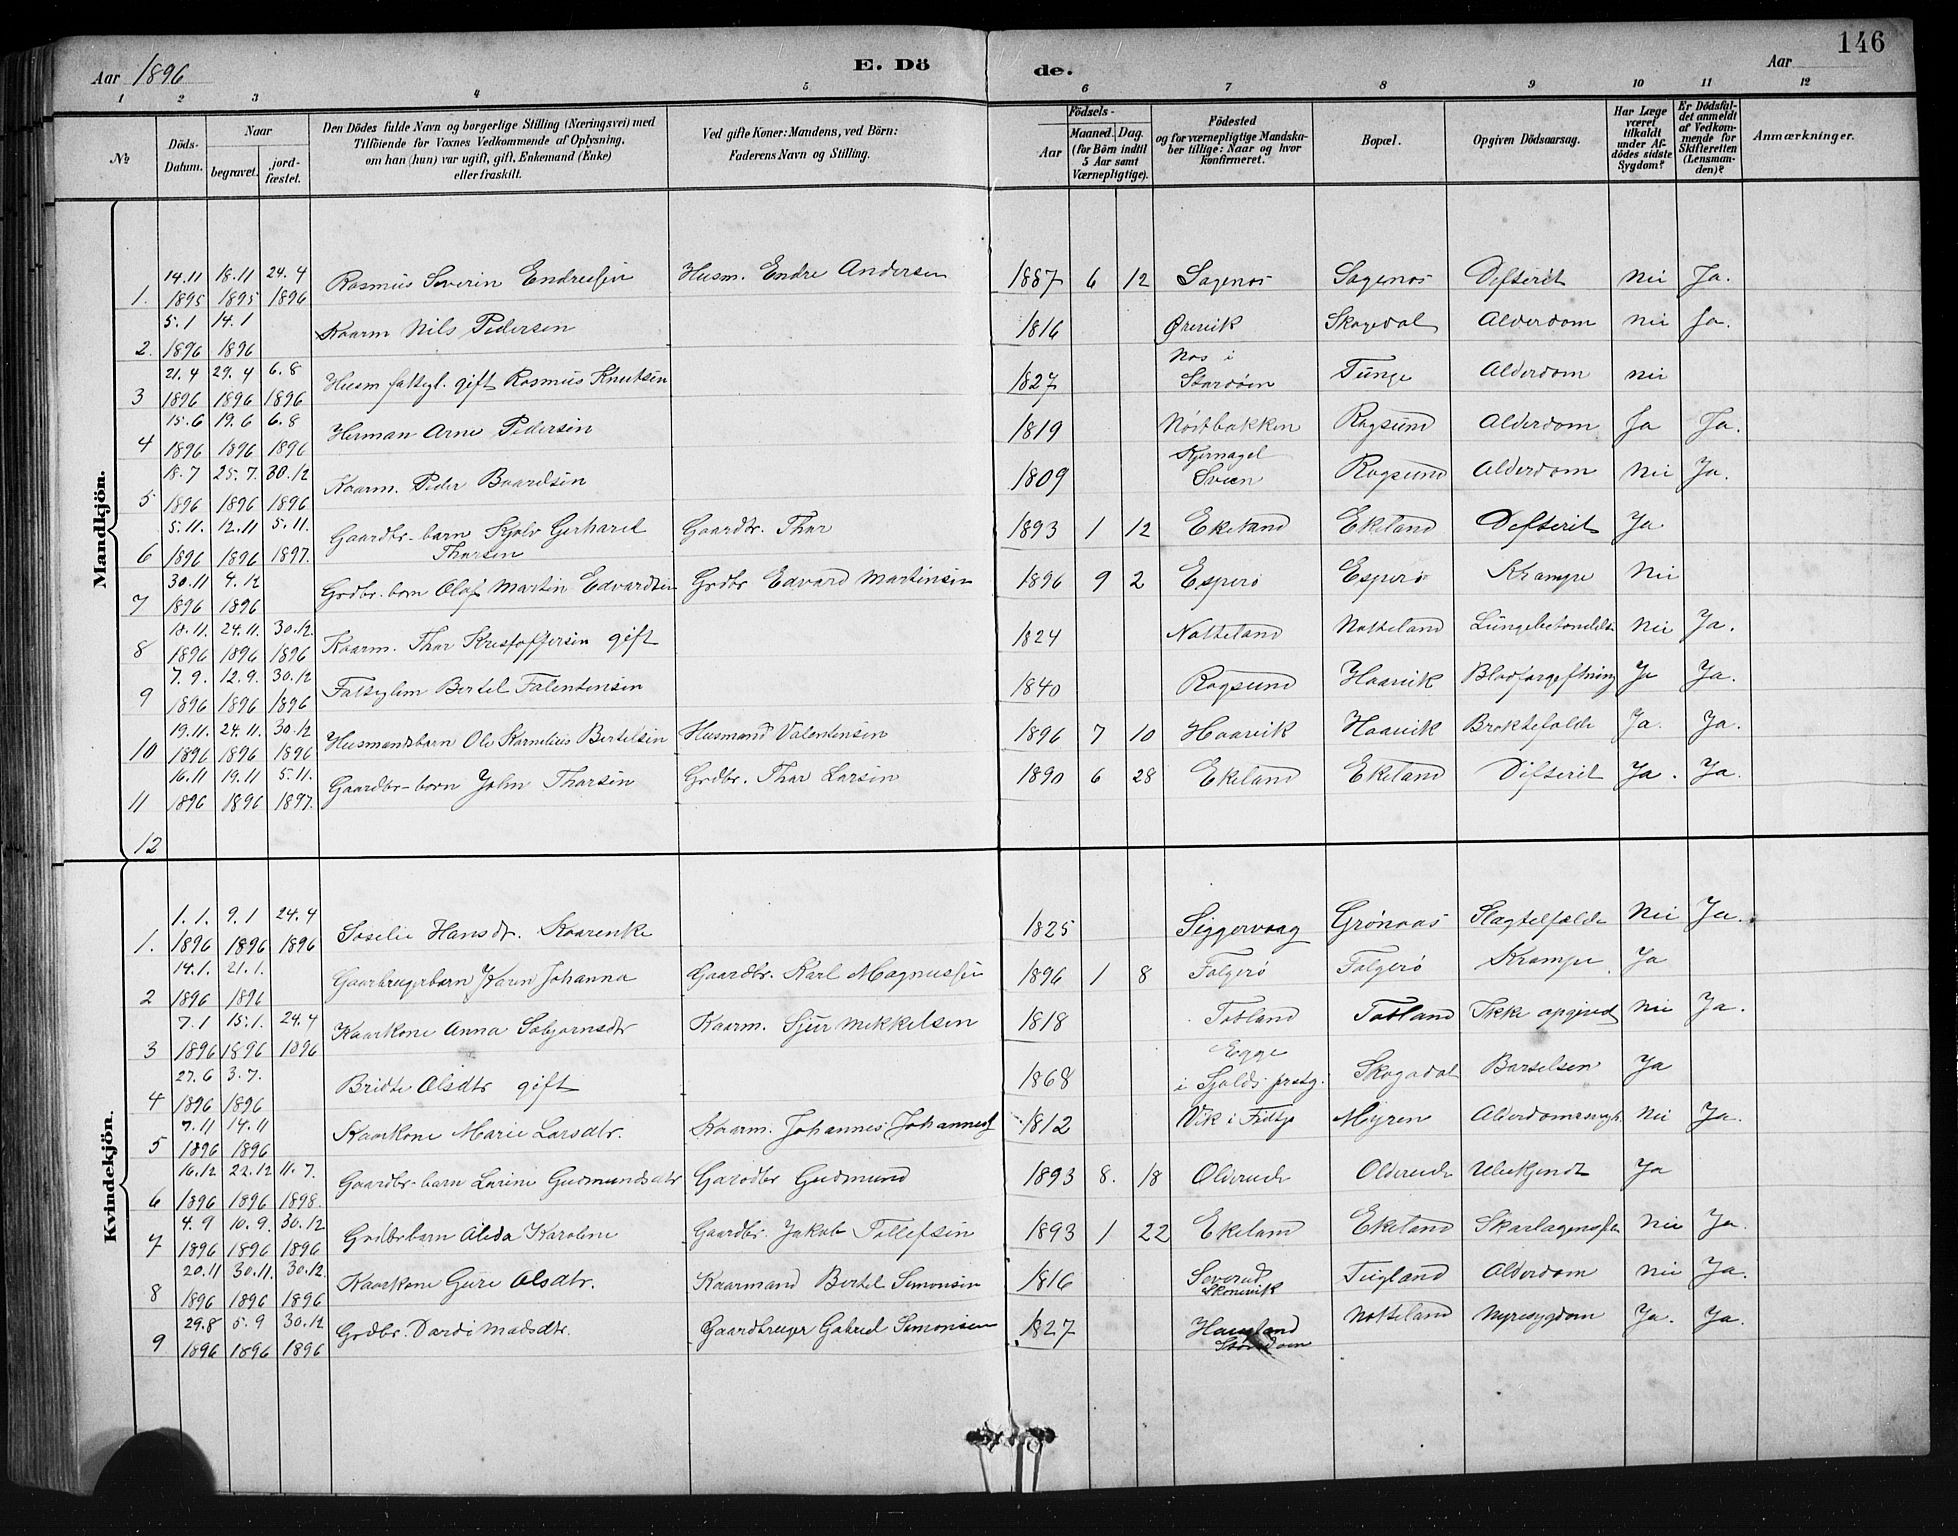 146
Aar 1896 E. Dö de. Aar
1 2 3 4 5 6 7 8 9 10 11 12
№
Döds-Datum.
Naar
begravet.
jord-fæstet.
Den Dödes fulde Navn og borgerlige Stilling (Næringsvei) med
Tilföiende for Voxnes Vedkommende af Oplysning,
om han (hun) var ugift, gift, Enkemand (Enke)
eller fraskilt.
Ved gifte Koner: Mandens, ved Börn:
Faderens Navn og Stilling.
Födsels-
Aar
Maaned. Dag.
(for Börn indtil
5 Aar samt
Værnepligtige).
Födested
og for værnepligtige Mandska-
ber tillige: Naar og hvor
konfirmeret.
Bopæl.
Opgiven Dödsaarsag.
Har Læge
været
tilkaldt
under Af-
dödes sidste
Sygdom?
Er Dödsfal-
det anmeldt
af Vedkom-
mende for
Skifteretten
(Lensman-
den)?
Anmærkninger.
Mandkjön.
1. 14.11 1895 18.11 1895 24.4 1896 Rasmus Severin Endresen Husm. Endre Andersen 1887 6 12 Sagenos Sagenos Defterit Nei Ja.
2. 5.1 1896 14.1 1896 Kaarm Nils Pedersen 1816 Ørevik Skogedal Alderdom Nei Ja.
3 21.4 1896 29.4 1896 6.8 1896 Husm fattigl. gift Rasmus Knutsen 1827 Nos i Stordöen Tunge Alderdom Nei
4 15.6 1896 19.6 1896 6.8 1896 Herman Arne Pedersen 1819 Nöstbakken Rogsund Alderdom Ja Ja.
5 18.7 1896 25.7. 1896 30.12 1896 Kaarm. Peder Baardsen 1809 Kjernagel Sveen Rogsund Alderdom Nei Ja.
6 5.11. 1896 12.11 1896 5.11. 1897. Gaardbr-barn Kjolv Gerhard Thorsen Gaardbr. Thor 1893 1 12 Ekeland Ekeland Defterit Ja
7 30.11 1896 4.12 1896 Grdbr. barn Olaf Martin Edvardsen Grdbr Edvard Martinsen 1896 9 2 Esperö Esperö Krampe Nei
8 18.11. 1896 24.11. 1896 30.12. 1896 Kaarm. Thor Kristoffersen gift 1824 Notteland Notteland Lungebetændelse Nei Ja.
9 7.9. 1896 12.9. 1896 30.12 1896 Fattiglem Bertel Falentensen 1840 Rogsund Haavik Blodforgeftning Ja Ja.
10 19.11. 1896 24.11. 1896 30.12 1896 Husmandsbarn Ole Kornelius Bertelsen Husmand Valentensen 1896 7 10 Haavik Haavik Broktefælde Ja. Ja.
11 16.11 1896 19.11 1896 5.11. 1897. Gaardbr-barn John Thorsen Grdbr. Thor Larsen 1890 6 28 Ekeland Ekeland Difterit Ja. Ja.
12
Kvindekjön.
1. 1.1. 1896 9.1 1896 24.4 1896 Soselie Hansdr. Kaarenke 1825 Siggervaag Grönaas Slagtelfælde Nei Ja.
2 14.1. 1896 21.1. 1896 Gaarbrugerbarn Karen Johanna Gaardbr. Karl Magnussen 1896 1 8 Folgerö Folgerö Krampe Ja
3 7.1 1896 15.1. 1896 24.4 1896 Kaarkone Anna Sebjornsdtr Kaarm. Sjur Mikkelsen 1818 Totland Totland Ikke opgived Nei Ja.
4 27.6 1896 3.7. 1896 Bridte Olsdtr gift 1868 Egge i Fjolds prstg. Skogadal Barselsen Ja
5 7.11 1896 14.11 1896 Kaarkone Marie Larsdtr. Kaarm. Johannes Johannes 1812 Vik i Fitje Myren Alderdomssvagh Nei Ja.
6 16.12 1896 22.12 1896 11.7. 1898. Gaardbr-barn Larine Gudmundsdtr Gardbr Gudmund 1893 8. 18 Oldereide Oldereide Ubekjendt Ja
7 4.9 1896 10.9. 1896 30.12 1896 Grdbrbarn Alida Karoline Gaardbr. Jakob Tollefsen 1893 1 22 Ekeland Ekeland Skarlagensfeb Nei Ja.
8 20.11 1896 30.11. 1896 30.12. 1896 Kaarkone Guri Olsdtr. Kaarmand Bertel Simonsen 1816 Severud Skonevik Tugland Alderdom Nei Ja.
9 29.8 1896 5.9 1896 30.12 1896 Grdbr. Dordi Madsdtr. Gaardbruger Gabriel Simonsen 1827 Haugland Stordöen Notteland Nyresygdom Ja. Ja.